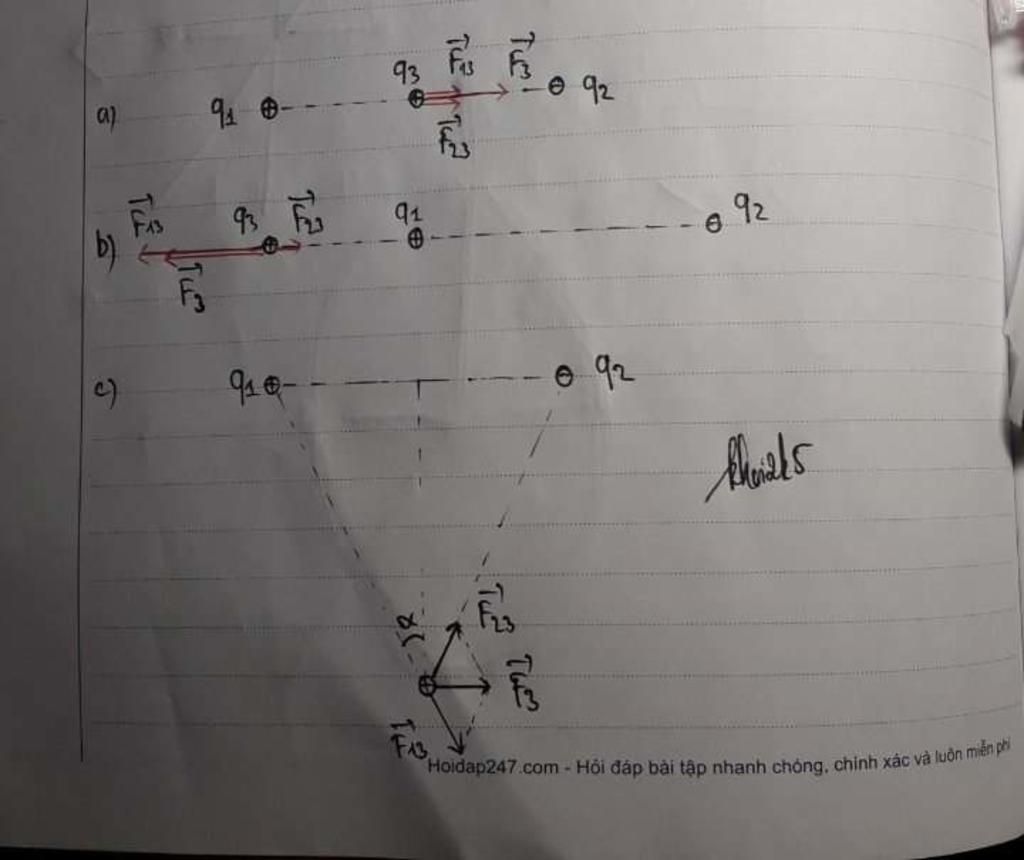 a) q1 ⊕ q3 ⊕ F13 F3 ⊖ q2
F23
b) F13 q3 ⊕ F23 q1 ⊕ ⊖ q2
F3
c) q1 ⊕ ⊖ q2
α F23
⊕ F3
F13
Hoidap247.com - Hỏi đáp bài tập nhanh chóng, chính xác và luôn miễn phí